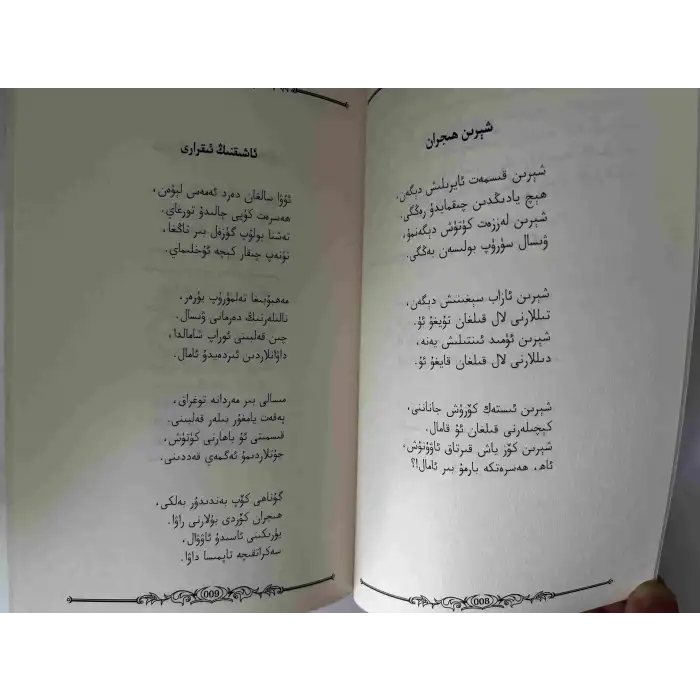 شېرىن ھىجران
شېرىن قىسمەت ئايرىلىش دېگەن،
ھېچ يادىڭدىن چىقمايدۇ رەڭگى.
شېرىن لەززەت كۈتۈش دېگەنمۇ،
ۋىسال سۈرۈپ بولىسەن بەڭگى.
شېرىن ئازاب سېغىنىش دېگەن،
تىللارنى لال قىلغان تۇيغۇ ئۇ.
شېرىن ئۈمىد ئىنتىلىش يەنە،
دىللارنى لال قىلغان قايغۇ ئۇ.
شېرىن ئىستەك كۆرۈش جاناننى،
كېچىلەرنى قىلغان ئۇ قامال.
شېرىن كۆز ياش قىرتاق ئاۋۇنۇش،
ئاھ، ھەسرەتكە بارمۇ بىر ئامال!؟
008
ئاشىقنىڭ ئىقرارى
ئۇۋا سالغان دەرد ئەمەس لېۋەن،
ھەسرەت كۈيى چالىدۇ تورغاي.
تەشنا بولۇپ گۈزەل بىر تاڭغا،
تۈنەپ چىقار كېچە ئۇخلىماي.
مەھبۇبىغا تەلمۈرۈپ يۈرەر،
نالىلەرنىڭ دەرمانى ۋىسال.
چىن قەلبىنى ئوراپ شامالدا،
داۋانلاردىن ئىزدەيدۇ ئامال.
مىسالى بىر مەردانە توغراق،
پەقەت يامغۇر بىلەر قەلبىنى.
قىسمىتى ئۇ باھارنى كۈتۈش،
جۇتلاردىمۇ ئەگمەي قەددىنى.
گۇناھى كۆپ بەندىدۇر بەلكى،
ھىجران كۆردى بۇلارنى راۋا.
يۈرىكىنى ئاسىدۇ ئاۋۋال،
سەكراتقىچە تاپمىسا داۋا.
009